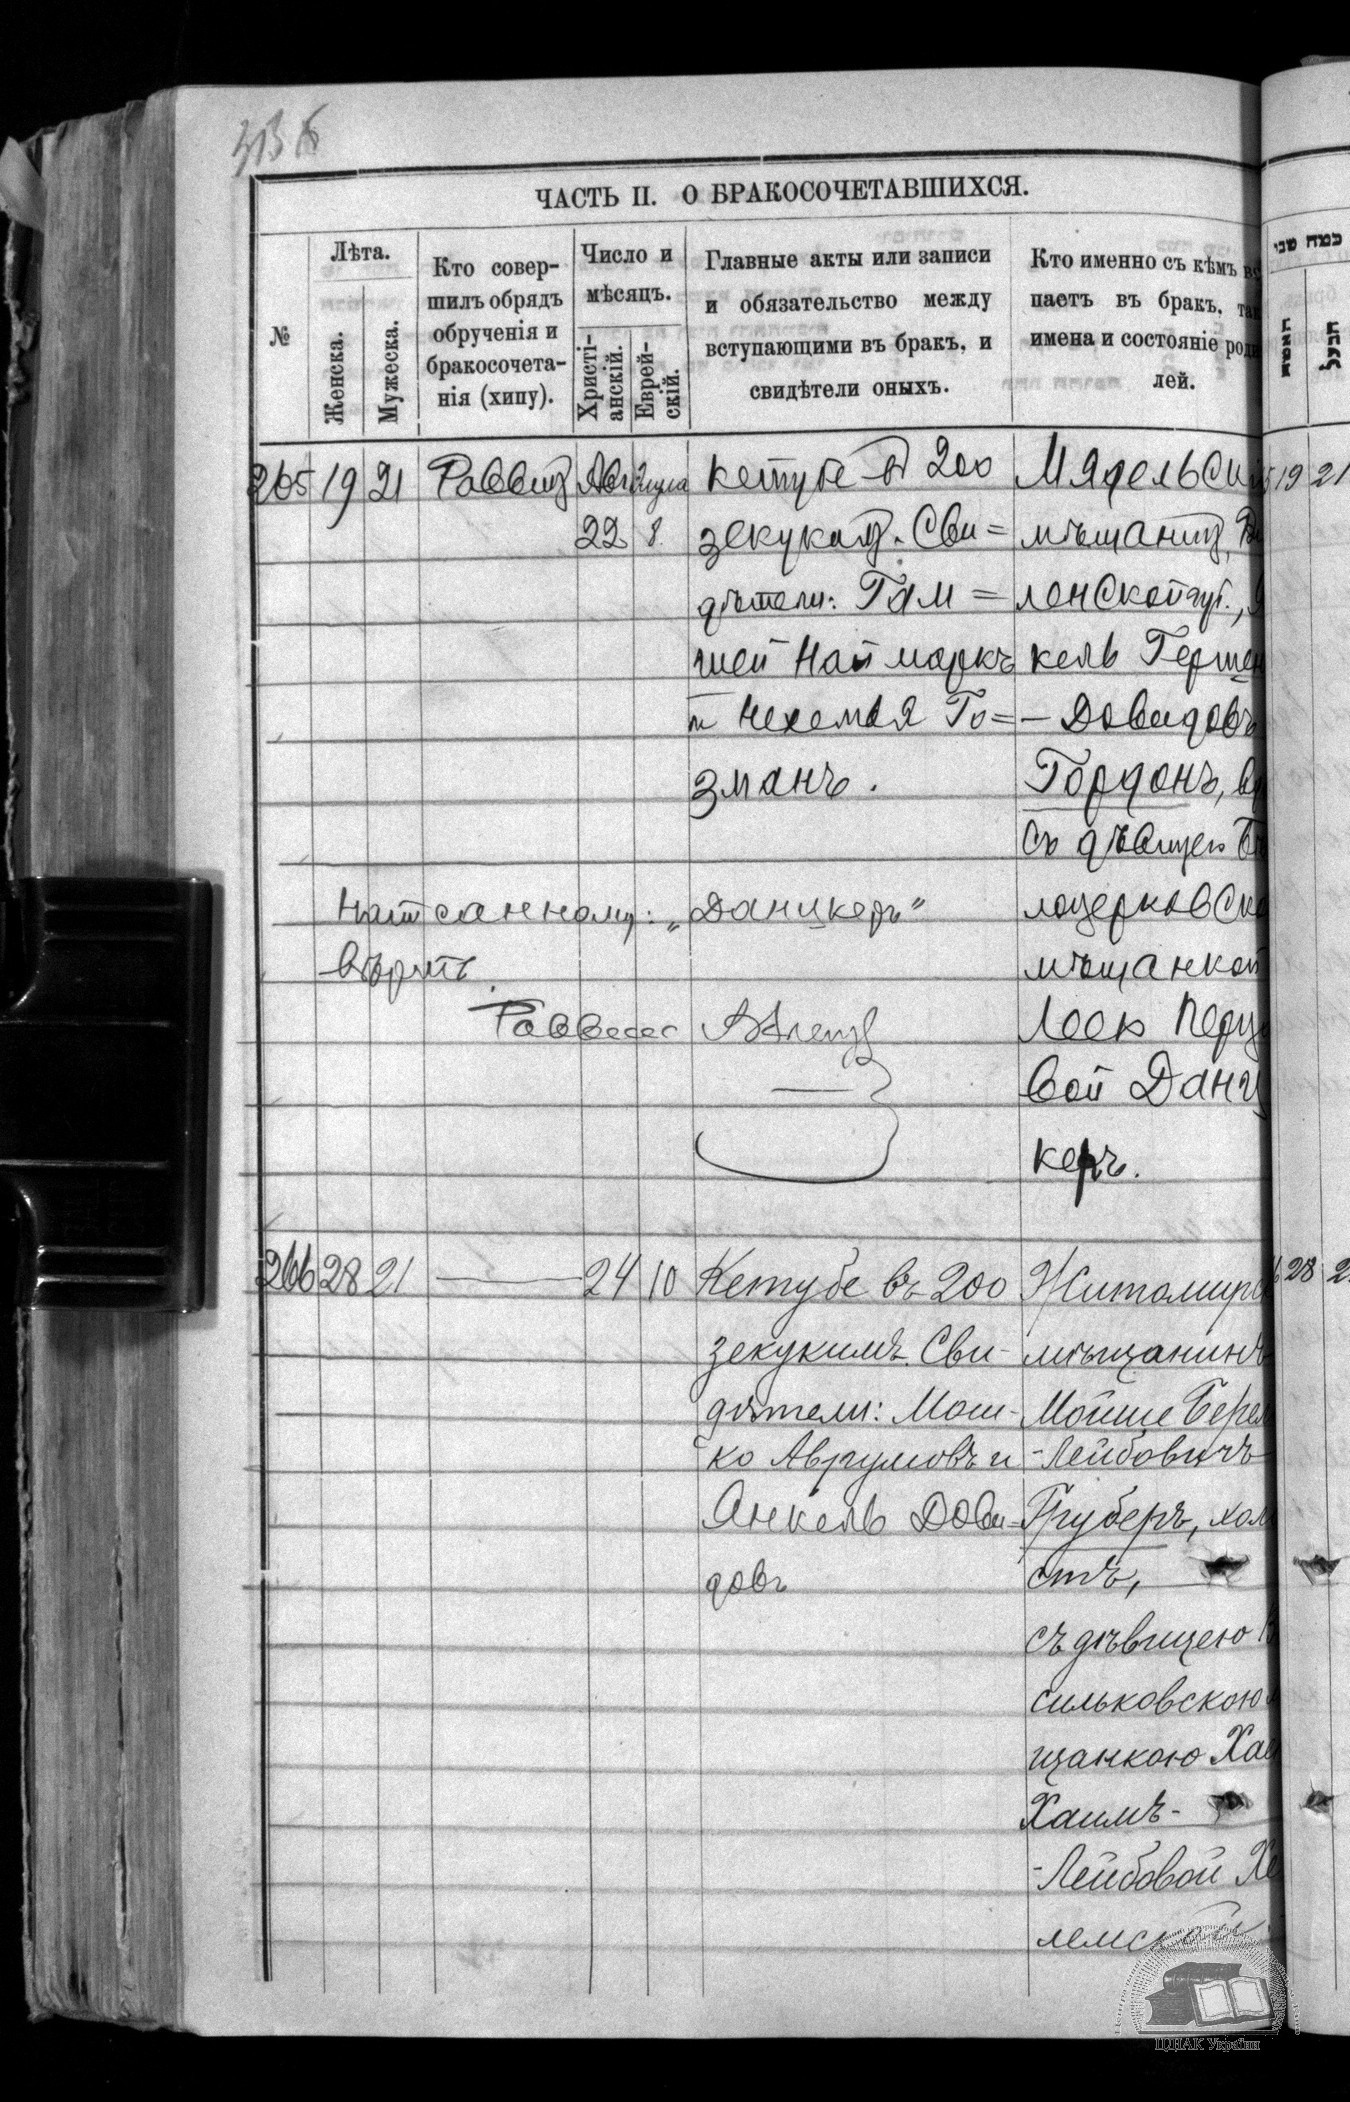 ЧАСТЬ II. О БРАКОСОЧЕТАВШИХСЯ.
№
Лѣта.
Женска.
Мужеска.
Кто совер-
шилъ обрядъ
обрученія и
бракосочета-
нія (хипу).
Число и
мѣсяцъ.
Христі-
анскій.
Еврей-
скій.
Главные акты или записи
и обязательство между
вступающими въ бракъ, и
свидѣтели оныхъ.
Кто именно съ кѣмъ вс
паетъ въ бракъ, так
имена и состояніе роди
лей.
כמה שני
265 19 21 Раввин Авг
22 8
кетубе в 200
зекуким. Сви=
дѣтели: Гам=
шей Наймаркъ
и Нехемья Го=
зманъ.
Мядельск
мѣщанин, Ви
ленской губ.,
кель Гершен
-Довидовъ
Гордонъ,
съ дѣвицею Бѣ
лоцерковско
мѣщанкой
Леею Перц
вой Данц
керъ.
Написанному: „Данцкеръ"
вѣрить.
266 28 21 24 10
Кетубе въ 200
зекукимъ. Сви-
дѣтели: Мош-
ко Аврумовъ и
Янкель Дови-
довъ
Житомирс
мѣщанинъ
Мойше Берел
-Лейбовичъ
Груберъ, хол
стъ,
съ дѣвицею В
сильковскою м
щанкою Хая
Хаимъ-
-Лейбовой Хе
лемской
19 21
28 2
ЦДІАК України